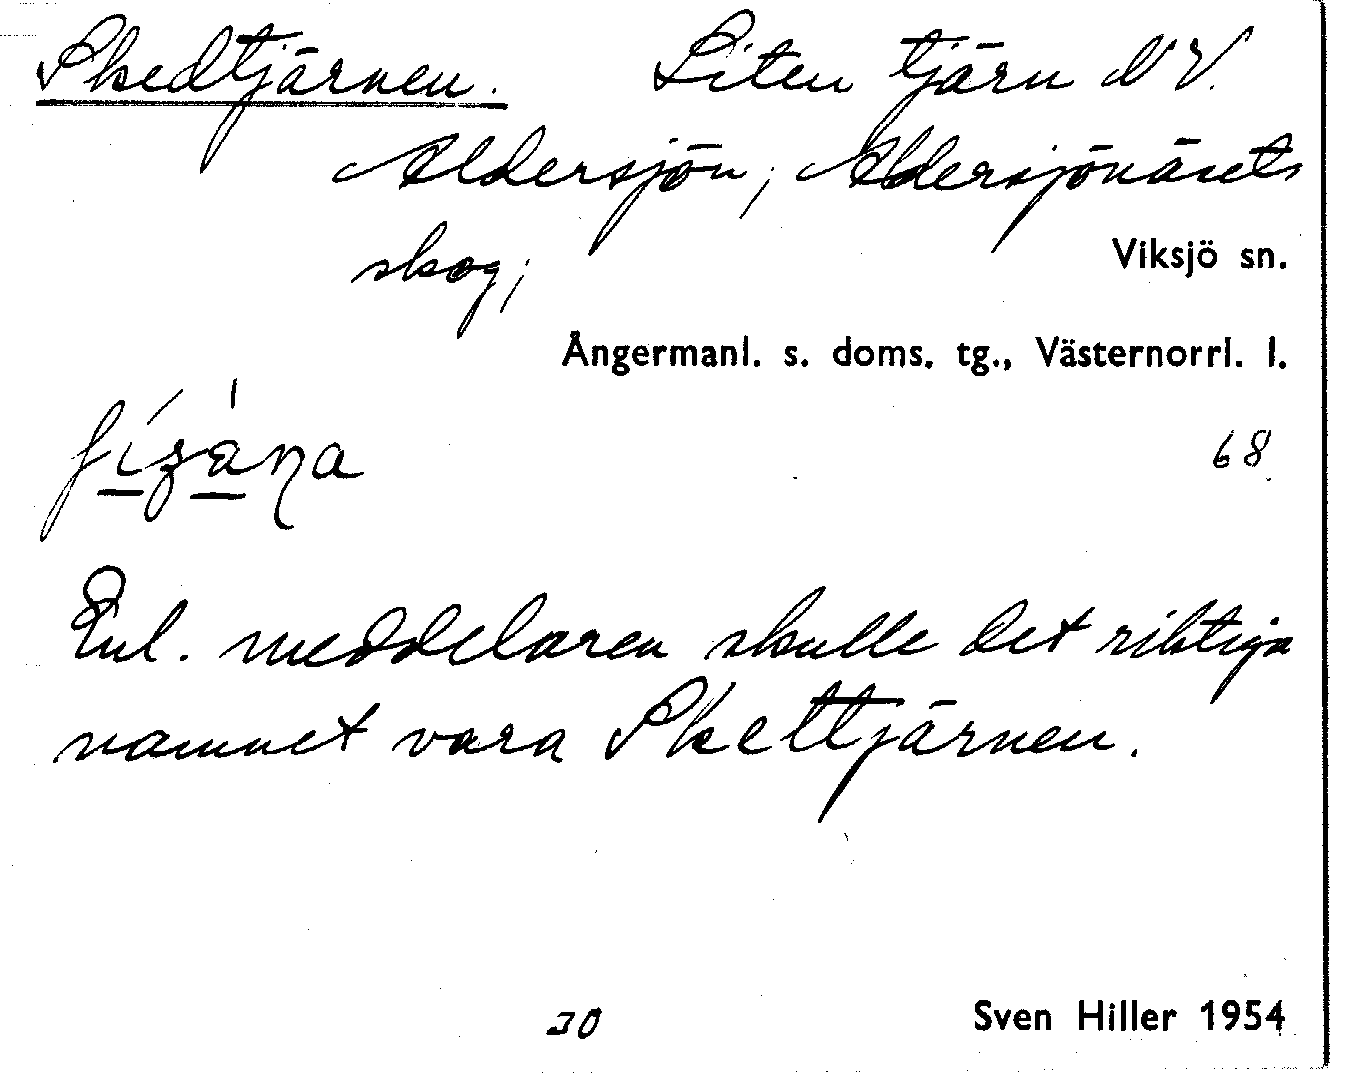 Skedtjärnen. Liten tjärn NV.
Aldersjön; Aldersjönäsets
skog;
Viksjö sn.
Ångermanl. s. doms. tg., Västernorrl. l.
68
Enl. meddelaren skulle det riktiga
namnet vara Skettjärnen.
30
Sven Hiller 1954